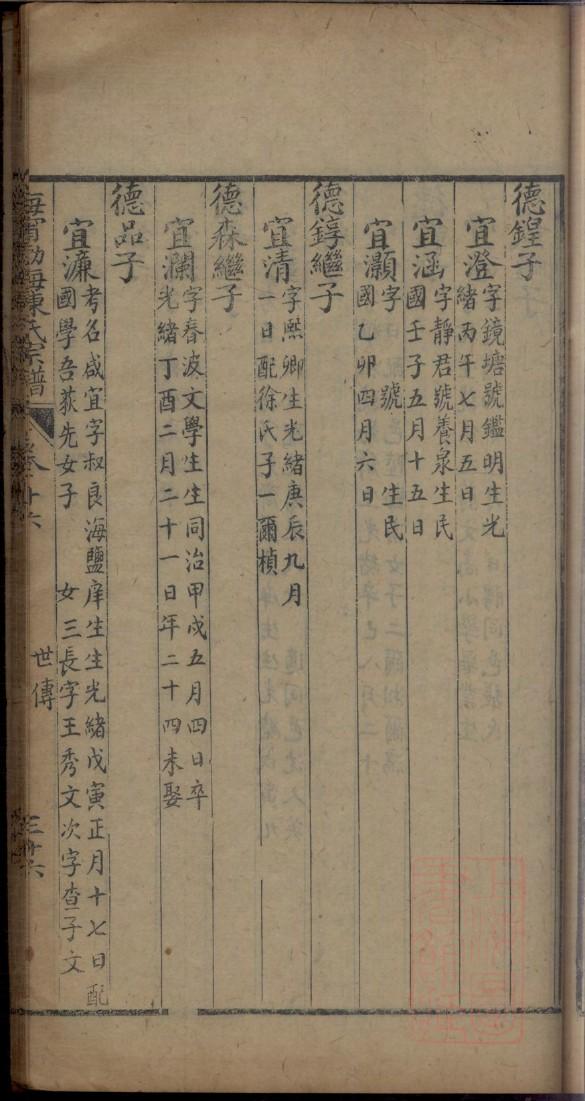 德鍠子
宜澄字鏡塘號鑑明生光
緒丙午七月五日
宜涵字靜君號養泉生民
國壬子五月十五日
宜灝字 號 生民
國乙卯四月六日
德錞繼子
宜清字熙卿生光緒庚辰九月
一日配徐氏子一爾楨
德森繼子
宜瀾字春波文學生生同治甲戌五月四日卒
光緒丁酉二月二十一日年二十四未娶
德品子
宜濂考名咸宜字叔良海鹽庠生生光緒戊寅正月十七日配
國學吾荻先女子 女三長字王秀文次字查子文
海甯渤海陳氏宗譜 卷廿六 世傳 三十六